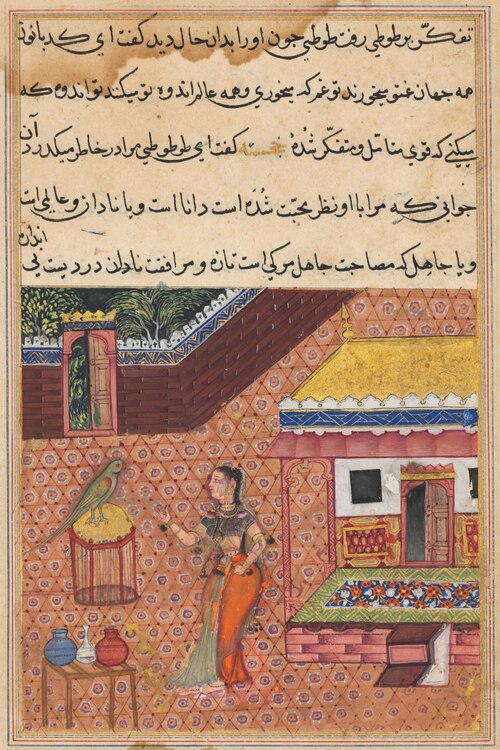 تفکر بر طوطی رفت طوطی چون او را بدان حال دید گفت ای کدبانو
همه جهان غم تو میخورند تو غم که میخوری و همه عالم اندوه تو میکنند تو اندوه که
میکنی که قوی متامل و متفکر شدهٔ خجسته گفت ای طوطی مرا در خاطر میگذرد آن
جوانی که مرا با او نظر محبت شدهٔ است دانا است و یا نادان و عالم است
و یا جاهل که مصاحبت جاهل مرکی است تازه و مرافقت نادان دردیست بی
اندازه